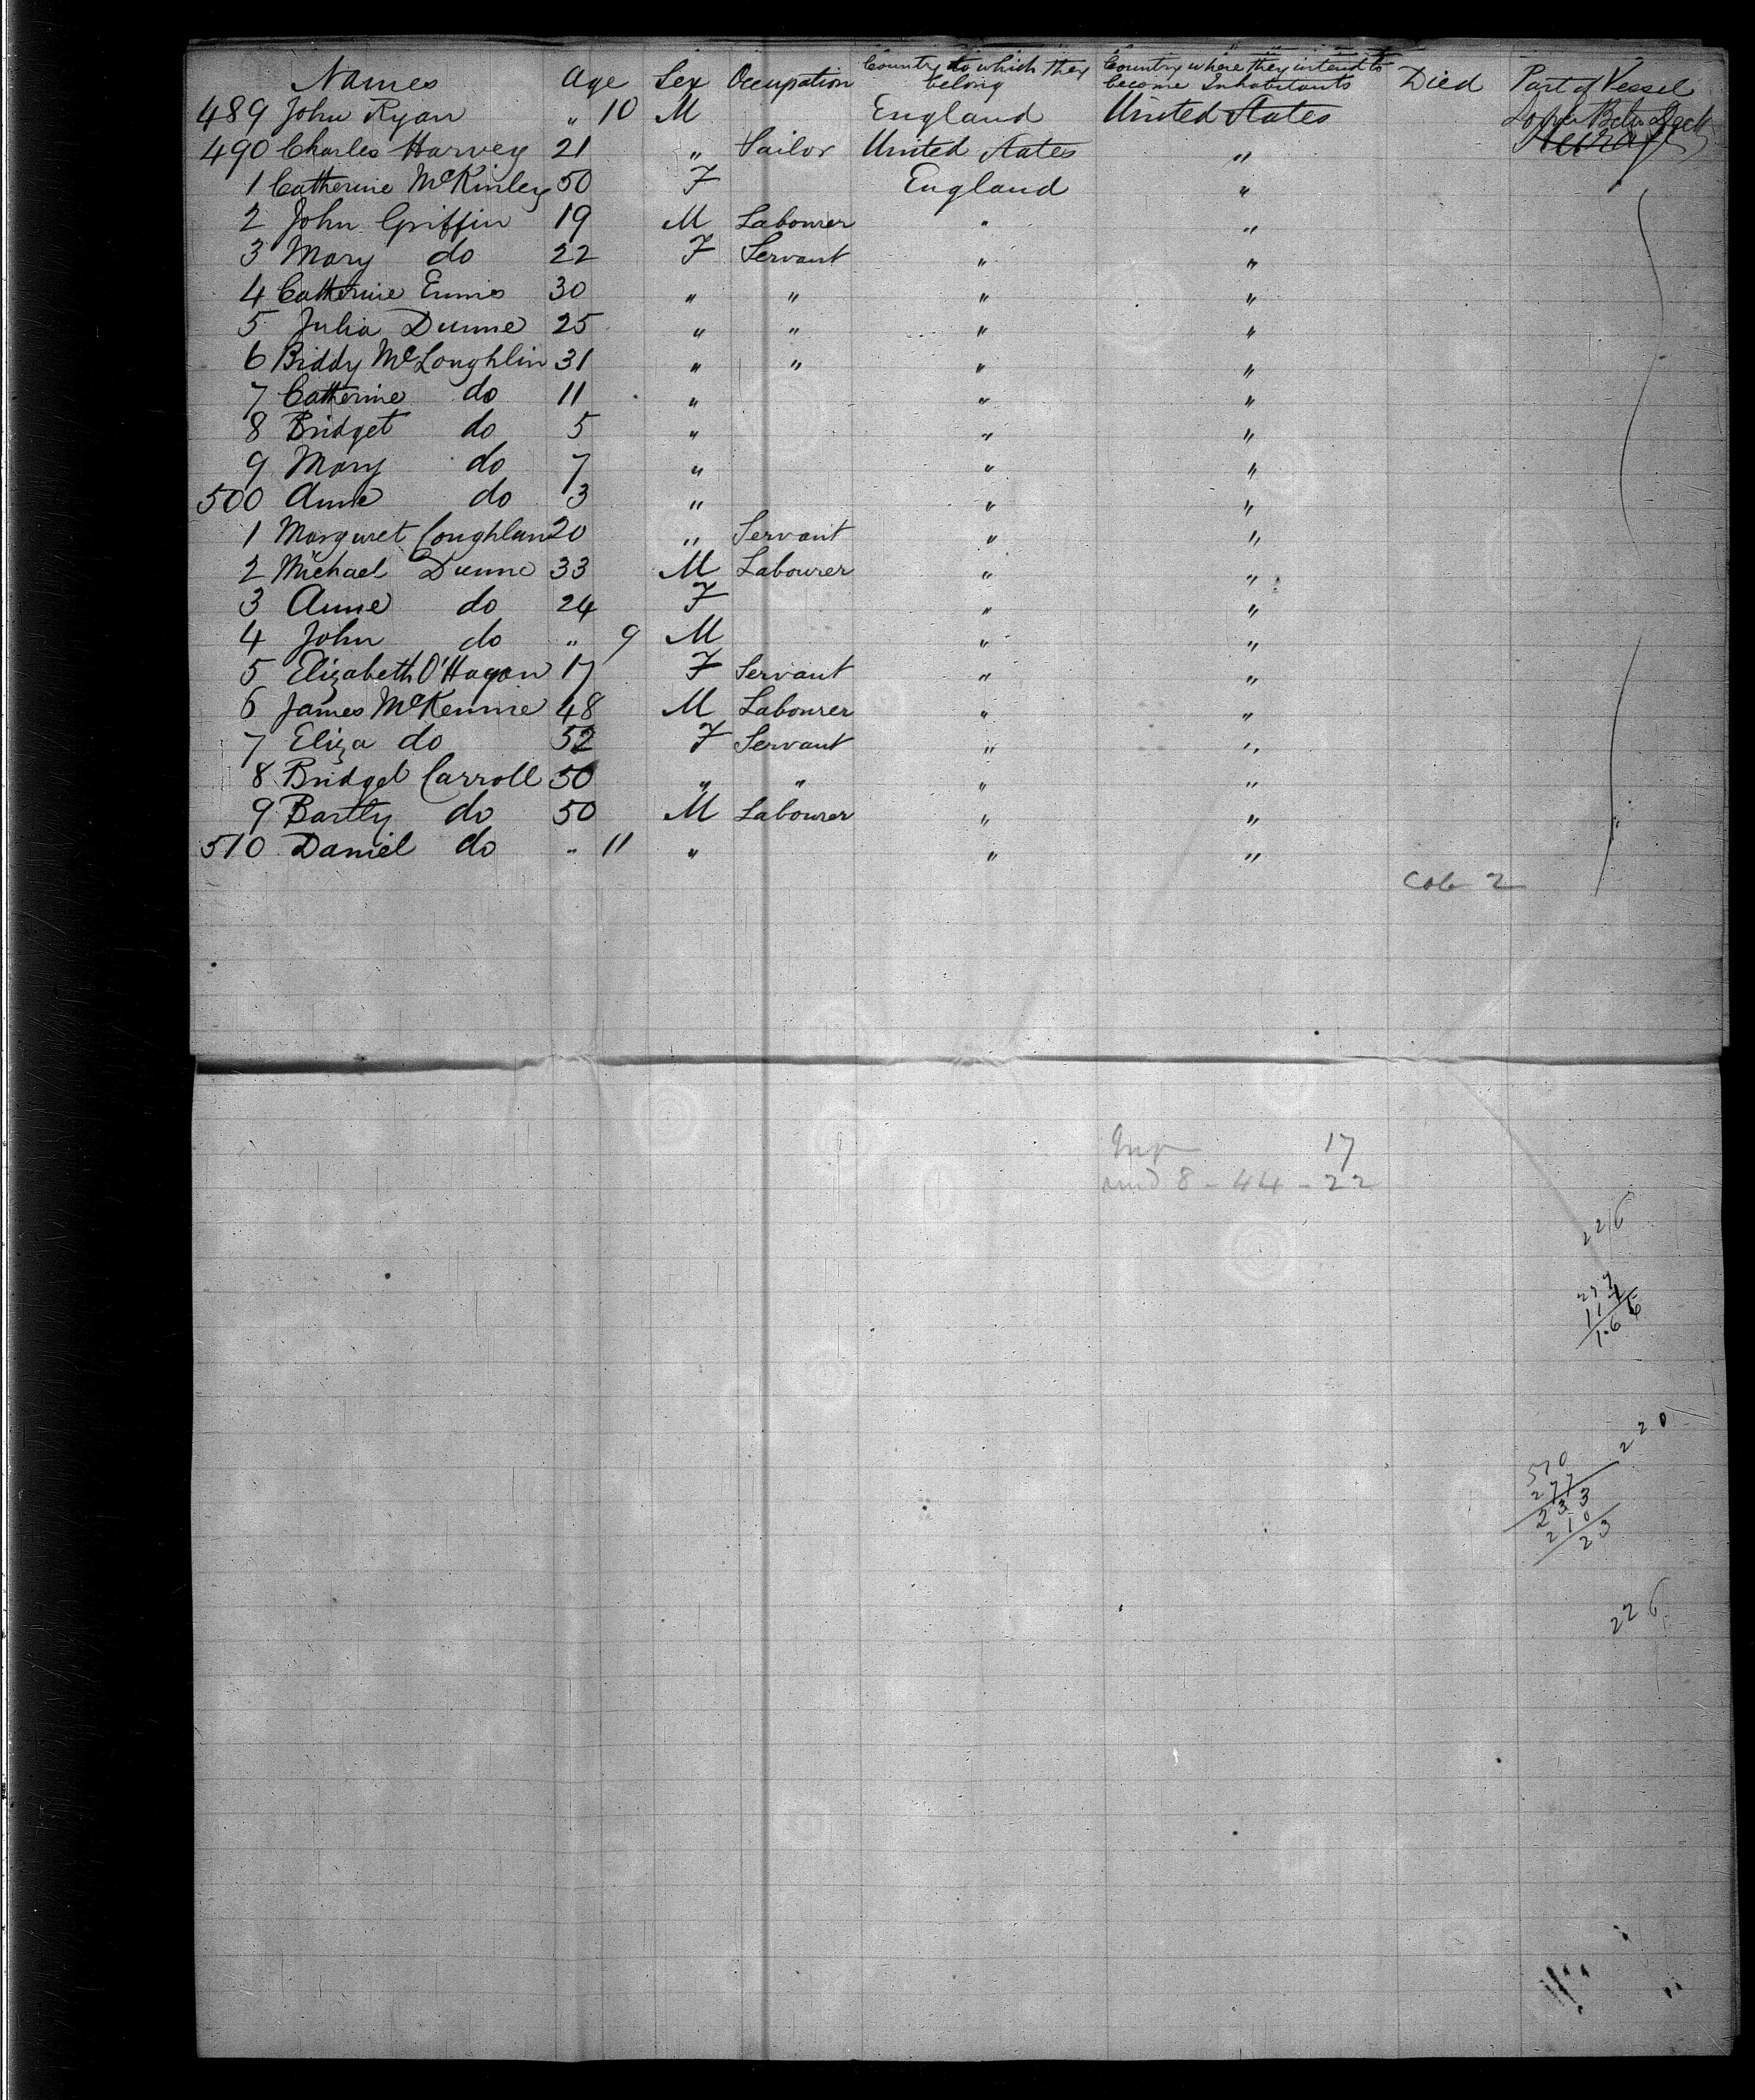 Names Age Sex Occupation Country to which they belong Country where they intend to become Inhabitants Died Part of Vessel
489 John Ryan " 10 M England United States Lower Betw Deck
490 Charles Harvey 21 " Sailor United States "
1 Catherine McKinley 50 F England "
2 John Griffin 19 M Labourer " "
3 Mary do 22 F Servant " "
4 Catherine Ennis 30 " " " "
5 Julia Dunne 25 " " " "
6 Biddy McLoughlin 31 " " " "
7 Catherine do 11 " " "
8 Bridget do 5 " " "
9 Mary do 7 " " "
500 Anne do 3 " " "
1 Margaret Coughlan 20 " Servant " "
2 Michael Dunne 33 M Labourer " "
3 Anne do 24 F " "
4 John do " 9 M " "
5 Elizabeth O'Hagan 17 F Servant " "
6 James McKennie 48 M Labourer " "
7 Eliza do 52 F Servant " "
8 Bridget Carroll 50 " " " "
9 Bartly do 50 M Labourer " "
510 Daniel do " 11 " " "
2
17
8 - 44 - 22
226
220
510
277
233
210
23
226